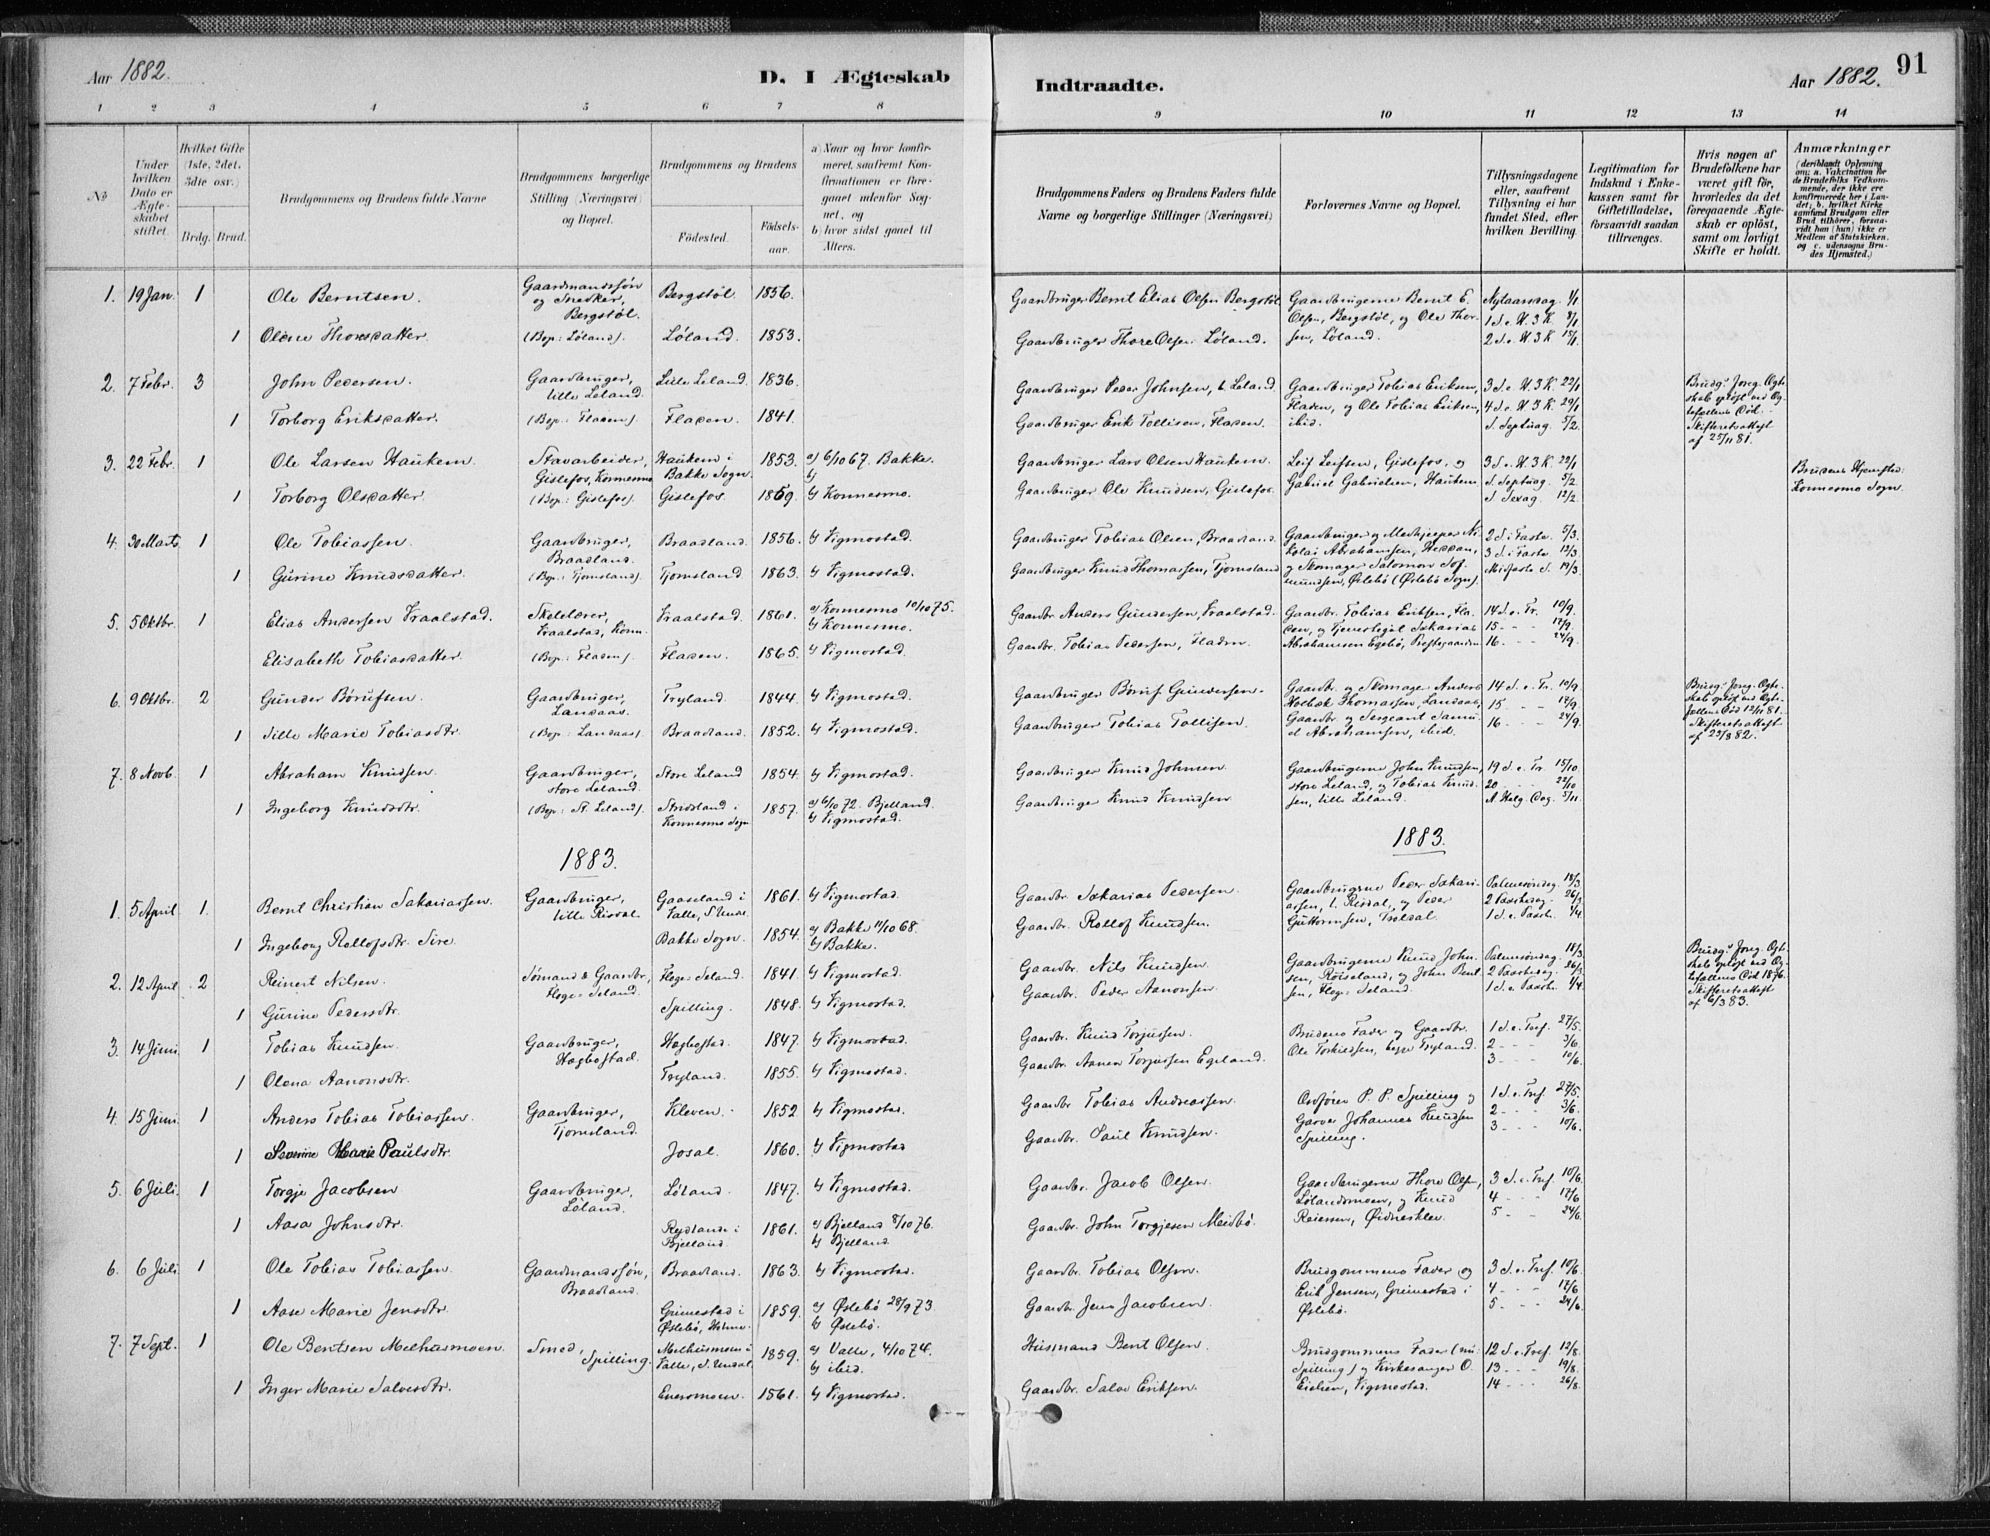 Aar 1882.
D. I Ægteskab
Indtraadte.
Aar 1882.
91
1 2 3 4 5 6 7 8 9 10 11 12 13 14
No
Under hvilken Dato er Ægteskabet stiftet.
Hvilket Gifte (1ste, 2det, 3die osv.)
Brdg. Brud.
Brudgommens og Brudens fulde Navne
Brudgommens borgerlige Stilling (Næringsvei) og Bopæl.
Brudgommens og Brudens
Fødested.
Fødselsaar.
a) Naar og hvor konfirmeret, saafremt Konfirmationen er foregaaet udenfor Sognet, og
b) hvor sidst gaaet til Alters.
Brudgommens Faders og Brudens Faders fulde Navne og borgerlige Stillinger (Næringsvei)
Forlovernes Navne og Bopæl.
Tillysningsdagene eller, saafremt Tillysning ei har fundet Sted, efter hvilken Bevilling.
Legitimation for Indskud i Enkekassen samt for Giftetilladelse, forsaavidt saadan tiltrænges.
Hvis nogen af Brudefolkene har været gift før, hvorledes da det foregaaende Ægteskab er opløst, samt om lovligt Skifte er holdt.
Anmærkninger
(deriblandt Oplysning om: a. Vakcination for de Brudefolks Vedkommende, der ikke ere konfirmerede her i Landet; b. hvilket Kirkesamfund Brudgom eller Brud tilhører, forsaavidt han (hun) ikke er Medlem af Statskirken, og c. udensogns Brudes Hjemsted.)
1. 19 Jan. 1 Ole Berntsen. Gaardmandssøn og Snedker, Bergstøl. Bergstøl. 1856. Gaardbruger Bernt Elias Olsen Bergstøl Gaardbrugerne Bernt E. Olsen, Bergstøl, og Ole Thorsen, Løland. Nytaarsdag 1/1 1 S. e. H. 3 K. 8/1 2 S. e. H. 3 K 15/1
1 Olene Thorsdatter (Bop: Løland). Løland. 1853. Gaardbruger Thore Olsen Løland.
2. 7 Febr. 3 John Pedersen. Gaardbruger, lille Leland. Lille Leland. 1836. Gaardbruger Peder Johnsen, l. Leland Gaardbruger Tobias Eriksen, Fladen, og Ole Tobias Eriksen, ibid. 3 S. e. H. 3 K. 22/1 4 S. e. H. 3 K. 29/1 S. Septuag. 5/2 Brudgs foreg. Ægteskab opløst ved Ægtefællens Død. Skifteretsattest af 25/11 81.
1 Torborg Eriksdatter. (Bop: Fladen). Fladen. 1841. Gaardbruger Erik Tollisen, Fladen.
3. 22 Febr. 1 Ole Larsen Haukem. Stavarbeider, Gislefos, Konnesmo Haukem i Bakke Sogn. 1853. a) 6/10 67. Bakke. b) Gaardbruger Lars Olsen Haukem. Leif Leifsen, Gislefos, og Gabriel Gabrielsen, Haukem 3 S. e. H. 3 K. 22/1 S. Septuag. 5/2 S. Sexag. 12/2. Brudens Hjemsted: Konnesmo Sogn.
1 Torborg Olsdatter. (Bop: Gislefos). Gislefos. 1859. b) Konnesmo. Gaardbruger Ole Knudsen, Gislefos.
4. 30 Marts. 1 Ole Tobiassen. Gaardbruger, Braadland. Braadland. 1856. b) Vigmostad. Gaardbruger Tobias Olsen, Braadland. Gaardbruger og Medhjelper Nikolai Abrahamsen, Heddan, og Skomager Salomon Salmundsen, Øslebø (Øslebø Sogn). 2 S. i Faste. 5/3. 3 S. i Faste. 12/3. Midfaste S. 19/3.
1 Gurine Knudsdatter. (Bop: Tjomsland). Tjomsland 1863. b) Vigmostad. Gaardbruger Knud Thomassen, Tjomsland
5. 5 Oktbr. 1 Elias Andersen Traalstad. Skolelærer, Traalstad, Konn. Traalstad. 1861. a) Konnesmo 10/10 75. b) Konnesmo. Gaardbr. Anders Gundersen, Traalstad. Gaardbr. Tobias Eriksen, Fladen, og Tjenestegut Sakarias Abrahamsen Egebø, Prestegaarden 14 S. e. Tr. 10/9. 15 - - - 17/9. 16 - - - 24/9.
Elisabeth Tobiasdatter. (Bop: Fladen). Fladen. 1865. b) Vigmostad. Gaardbr. Tobias Pedersen, Fladen.
6. 9 Oktbr. 2 Gunder Børufsen. Gaardbruger, Landaas. Tryland. 1844. b) Vigmostad. Gaardbruger Børuf Gundersen. Gaardbr. og Skomager Anders Holbæk Thomassen, Landaas, Gaardbr. og Sergeant Samuel Abrahamsen, ibid. 14 S. e. Tr. 10/9. 15 - - 17/9. 16 - - 24/9. Brudgs foreg. Ægteskab opløst ved Ægtefællens Død 12/11 81. Skifteretsattest af 25/8 82.
1 Sille Marie Tobiasdtr. (Bop: Landaas). Braadland. 1852. b) Vigmostad. Gaardbruger Tobias Tollisen.
7. 8 Novb. 1 Abraham Knudsen. Gaardbruger, store Leland. Store Leland 1854. b) Vigmostad. Gaardbruger Knud Johnsen Gaardbrugerne John Knudsen, store Leland, og Tobias Knudsen, lille Leland. 19 S. e. Tr. 15/10 20 - - - 22/10 A. Helg. Dag. 5/11.
1 Ingeborg Knudsdtr. (Bop: St. Leland). Stridsland i Konnesmo Sogn 1857. a) 6/10 72. Bjelland. b) Vigmostad. Gaardbruger Knud Knudsen
1883.
1883.
1. 5 April 1. Bernt Christian Sakariassen. Gaardbruger, lille Risdal. Gaaseland i Valle, S. Undal 1861. b) Vigmostad. Gaardbr. Sakarias Pedersen. Gaardbrugerne Peder Sakariassen, l. Risdal, og Peder Guttormsen, Trældal. Palmesøndag. 18/3. 2 Paaskedag. 26/3 1 S. e. Paaske. 1/4
1 Ingeborg Rollofsdtr. Sire. Bakke Sogn. 1854. a) Bakke 11/10 68. b) Bakke. Gaardbr. Rollof Knudsen.
2. 12 April. 2 Reinert Nilsen. Sømand & Gaardbr., Høge-Seland. Høge-Seland. 1841. b) Vigmostad. Gaardbr. Nils Knudsen Gaardbrugerne Knud Johnsen, Røiseland, og John Berntsen, Høge-Seland. Palmesøndag. 18/3 2 Paaskedag 26/3 1 S. e. Paaske. 1/4 Brudgs foreg. Ægteskab opløst ved Ægtefællens Død 1876. Skifteretsattest af 6/3 83.
1 Gurine Pedersdtr. Spilling. 1848. b) Vigmostad. Gaardbr. Peder Aanonsen.
3. 14 Juni. 1 Tobias Knudsen. Gaardbruger, Hægbostad. Hægbostad. 1847. b) Vigmostad. Gaardbr. Knud Torjussen. Brudens Fader og Gaardbr. Ole Torkildsen, begge Tryland. 1 S. e. Tref. 27/5. 2 - - - 3/6. 3 - - - 10/6.
1 Olena Aanonsdtr. Tryland. 1855. b) Vigmostad. Gaardbr. Aanen Torjussen Egeland.
4. 15 Juni. 1 Anders Tobias Tobiassen. Gaardbruger, Tjomsland. Kleven. 1852 b) Vigmostad. Gaardbr. Tobias Andreassen. Ordfører P. P. Spilling og Garver Johannes Knudsen Spilling. 1 S. e. Tref. 27/5. 2 - - - 3/6. 3 - - - 10/6.
1 Severine Marie Paulsdtr. Josal. 1860. b) Vigmostad Gaardbr. Paul Knudsen.
5. 6 Juli. 1 Torgje Jacobsen Gaardbruger, Løland. Løland. 1847. b) Vigmostad. Gaardbr. Jacob Olsen. Gaardbrugerne Thore Olsen, Lølandsmoen, og Knud Reiersen, Øidnesklev. 3 S. e. Tref. 10/6. 4 - - - 17/6 5 - - 24/6.
1 Aasa Johnsdtr. Røjdland i Bjelland. 1861. a) Bjelland 8/10 76. b) Bjelland. Gaardbr. John Torgjesen Meidbø.
6. 6 Juli. 1 Ole Tobias Tobiassen. Gaardmandssøn, Braadland. Braadland. 1863. b) Vigmostad. Gaardbr. Tobias Olsen. Brudgommens Fader og Erik Jensen, Grimestad i Øslebø. 3 S. e. Tref. 10/6. 4 - - - 17/6 5 - - - 24/6.
1 Aase Marie Jensdtr. Grimestad i Øslebø, Holme. 1859. a) Øslebø 28/9 73. b) Øslebø. Gaardbr. Jens Jacobsen.
7. 7 Sept. 1 Ole Bentsen Melhusmoen. Smed, Spilling. Melhusmoen i Valle, S. Undal 1859. a) Valle, 4/10 74. b) ibid. Husmand Bent Olsen. Brudgommens Fader (nu Spilling) og Kirkesanger O. Eielsen, Vigmostad. 12 S. e. Tref. 12/8. 13 - - - 19/8. 14 - - - 26/8.
1 Inger Marie Salvesdtr. Eversmoen. 1861. b) Vigmostad. Gaardbr. Salve Eriksen.